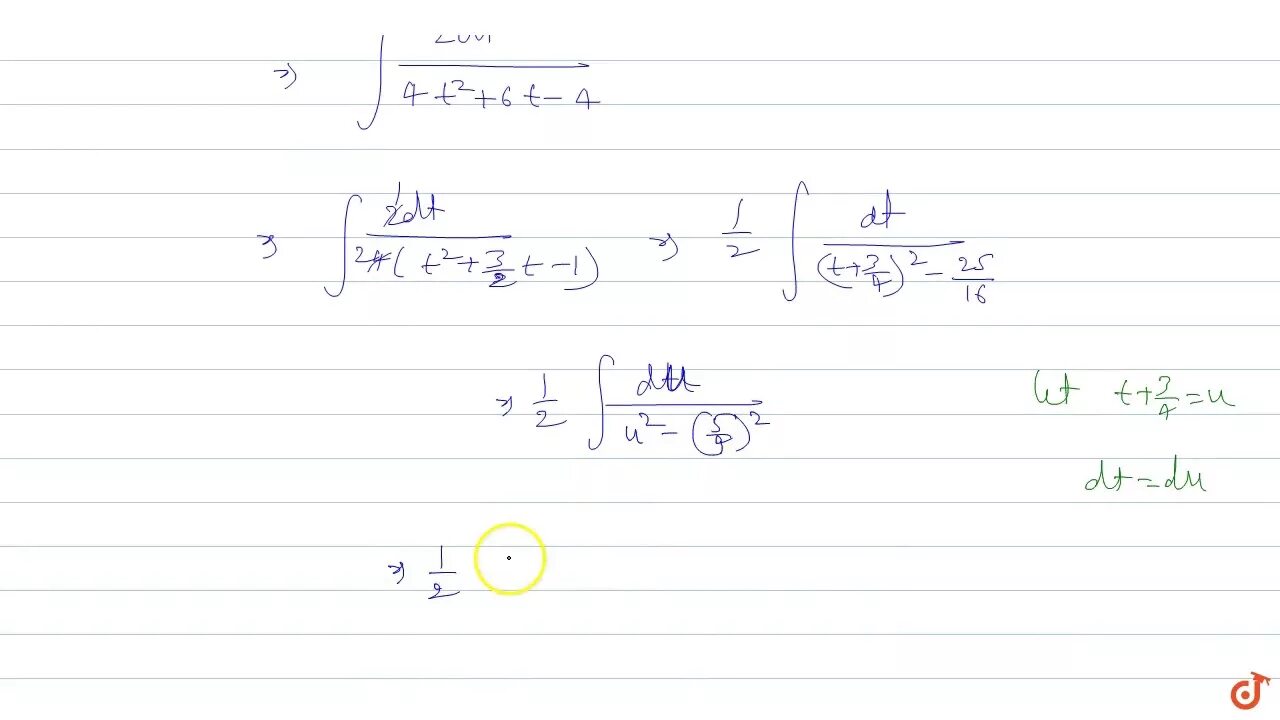 ⇒ ∫ 2dt / (4t² + 6t - 4)
⇒ ∫ 2dt / 4(t² + 3/2 t - 1) ⇒ 1/2 ∫ dt / ((t + 3/4)² - 25/16)
⇒ 1/2 ∫ du / (u² - (5/4)²) let t + 3/4 = u
dt = du
⇒ 1/2